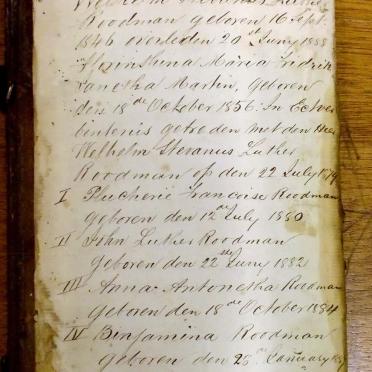 Roodman geboren 16 Sept.
1846 overleden 20st Juny 1888
Maria Fridrik
Martin, Geboren
den 18de October 1856. In Echtver
bintenis getreden met den Heer
Welhelm Stevanus Luther
Roodman op den 22 July 1879
I Plucherie Francoise Roodman
geboren den 12de July 1880
II John Luther Roodman
Geboren den 22ste Juny 1882
III Anna Antonetha Roodman
geboren den 18de October 1884
IV Benjamina Roodman
geboren den 25ste January